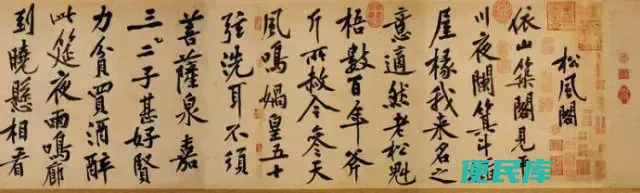 松風閣
依山築閣見平
川夜闌箕斗插
屋椽我來名之
意適然老松魁
梧數百年斧
斤所赦今參天
風鳴媧皇五十
弦洗耳不須
菩薩泉嘉
三二子甚好賢
力貧買酒醉
此筵夜雨鳴廊
到曉懸相看
便民库